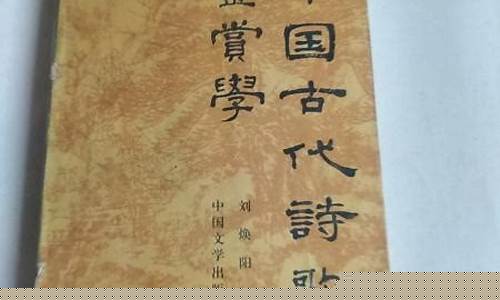 中国古代詩歌
鑑賞學
刘焕阳
中国文学出版